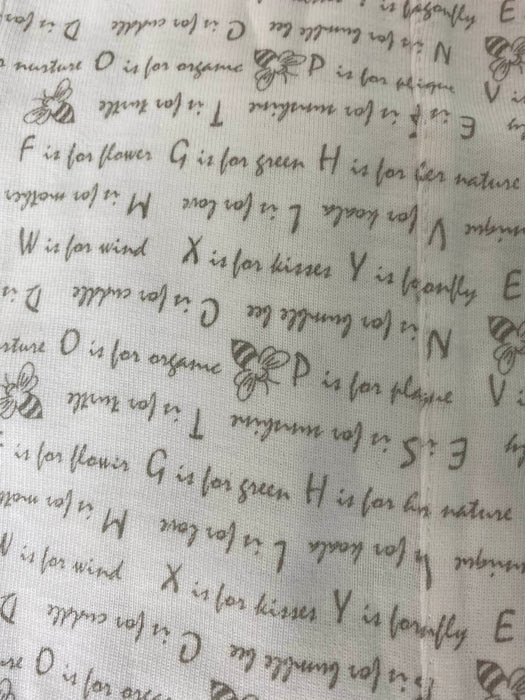 E
N is for bumble bee C is for cuddle D is for
nurture O is for organic P is for V
E is S is for sunshine T is for turtle
F is for flower G is for green H is for nature
unique for koala L is for love M is for mother
W is for wind X is for kisses Y is E
N is for bumble bee C is for cuddle D is
O is for organic P is for V
E is S is for sunshine T is for turtle
is for flower G is for green H is for nature
unique for koala L is for love M is for
is for wind X is for kisses Y is E
is for bumble bee C is for cuddle D
O is for